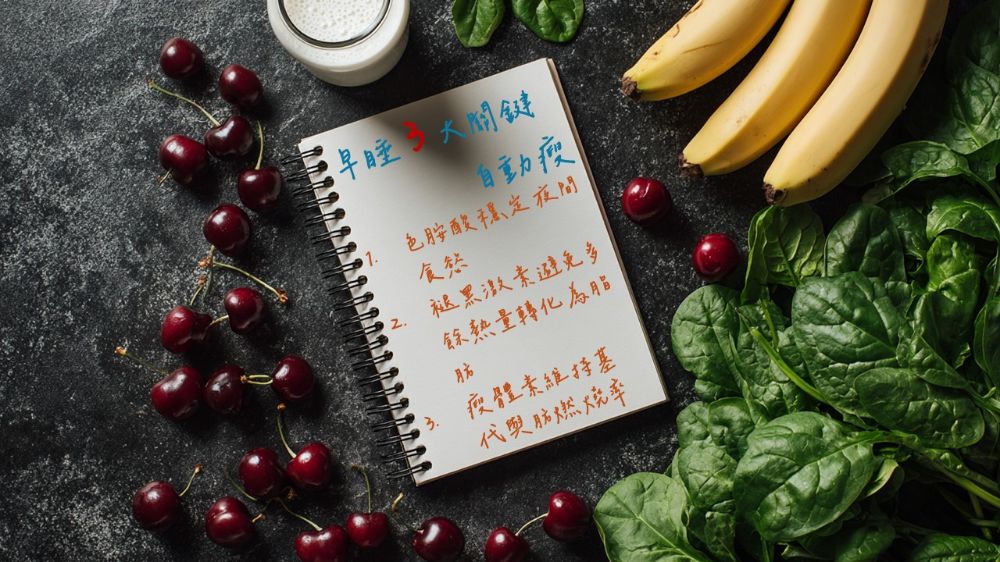 早睡3大關鍵
自動瘦
1. 色胺酸穩定夜間
食慾
2. 褪黑激素避免多
餘熱量轉化為脂
肪
3. 瘦體素維持基
代與肪燃燒率